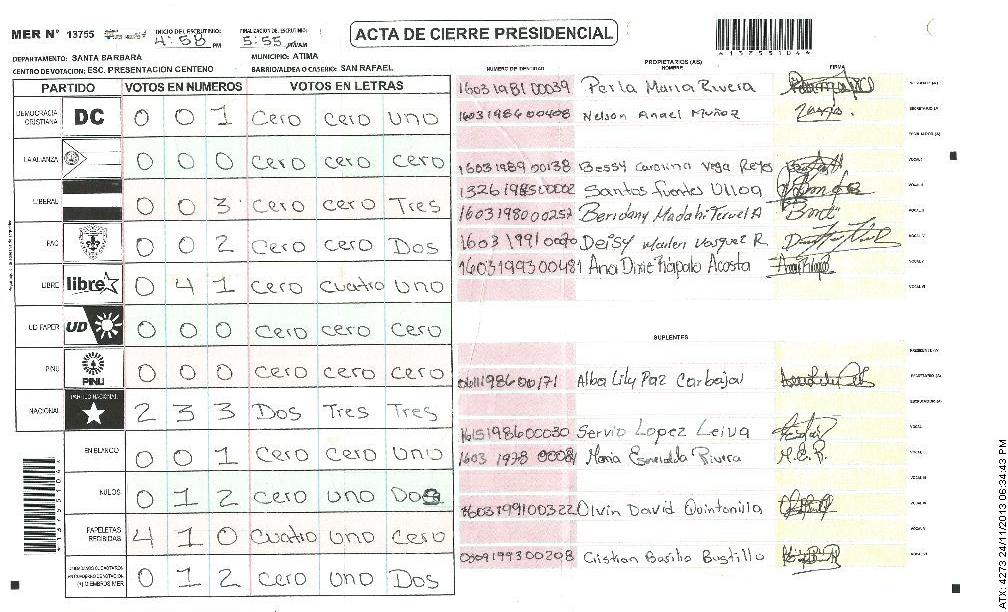 MER N° 13755 INICIO DEL ESCRUTINIO: 4:58 PM FINALIZACION DEL ESCRUTINIO: 5:55
ACTA DE CIERRE PRESIDENCIAL
*137551044*
DEPARTAMENTO: SANTA BARBARA MUNICIPIO: ATIMA
CENTRO DE VOTACION: ESC. PRESENTACION CENTENO BARRIO/ALDEA O CASERIO: SAN RAFAEL
PARTIDO VOTOS EN NUMEROS VOTOS EN LETRAS
DEMOCRACIA CRISTIANA DC 0 0 1 Cero cero uno
LA ALIANZA 0 0 0 cero cero cero
LIBERAL 0 0 3 Cero cero Tres
PAC 0 0 2 Cero cero Dos
LIBRE libre 0 4 1 Cero cuatro uno
UD FAPER UD 0 0 0 Cero cero Cero
PINU PINU 0 0 0 cero cero cero
NACIONAL PARTIDO NACIONAL 2 3 3 Dos Tres Tres
EN BLANCO 0 0 1 cero cero uno
NULOS 0 1 2 cero uno Dos
PAPELETAS RECIBIDAS 4 1 0 cuatro uno cero
(*) MIEMBROS MER 0 1 2 cero uno Dos
PROPIETARIOS (AS)
NUMERO DE IDENTIDAD NOMBRE FIRMA
1603198100039 Perla Maria Rivera
1603198600408 Nelson Anael Muñoz SECRETARIO (A)
ESCRUTADOR (A)
1603198900138 Bessy Carolina Vega Reyes VOCAL I
1326198500002 Santos Fuentes Ulloa VOCAL II
1603198000257 Beridany Madahi Teruel A VOCAL III
Deisy Marlen Vasquez R VOCAL IV
1603199300481 Ana Dixie Rapalo Acosta VOCAL V
VOCAL VI
SUPLENTES
PRESIDENTE (A)
Alba Lily Paz Carbajal SECRETARIO (A)
ESCRUTADOR (A)
1615198600030 Servio Lopez Leiva VOCAL I
Maria Esmeralda Rivera M.E.R. VOCAL II
VOCAL III
1603199100322 Olvin David Quintanilla VOCAL IV
VOCAL V
0509199300208 Cristian Basilio Bustillo VOCAL VI
ATX: 4273 24/11/2013 06:34:43 PM